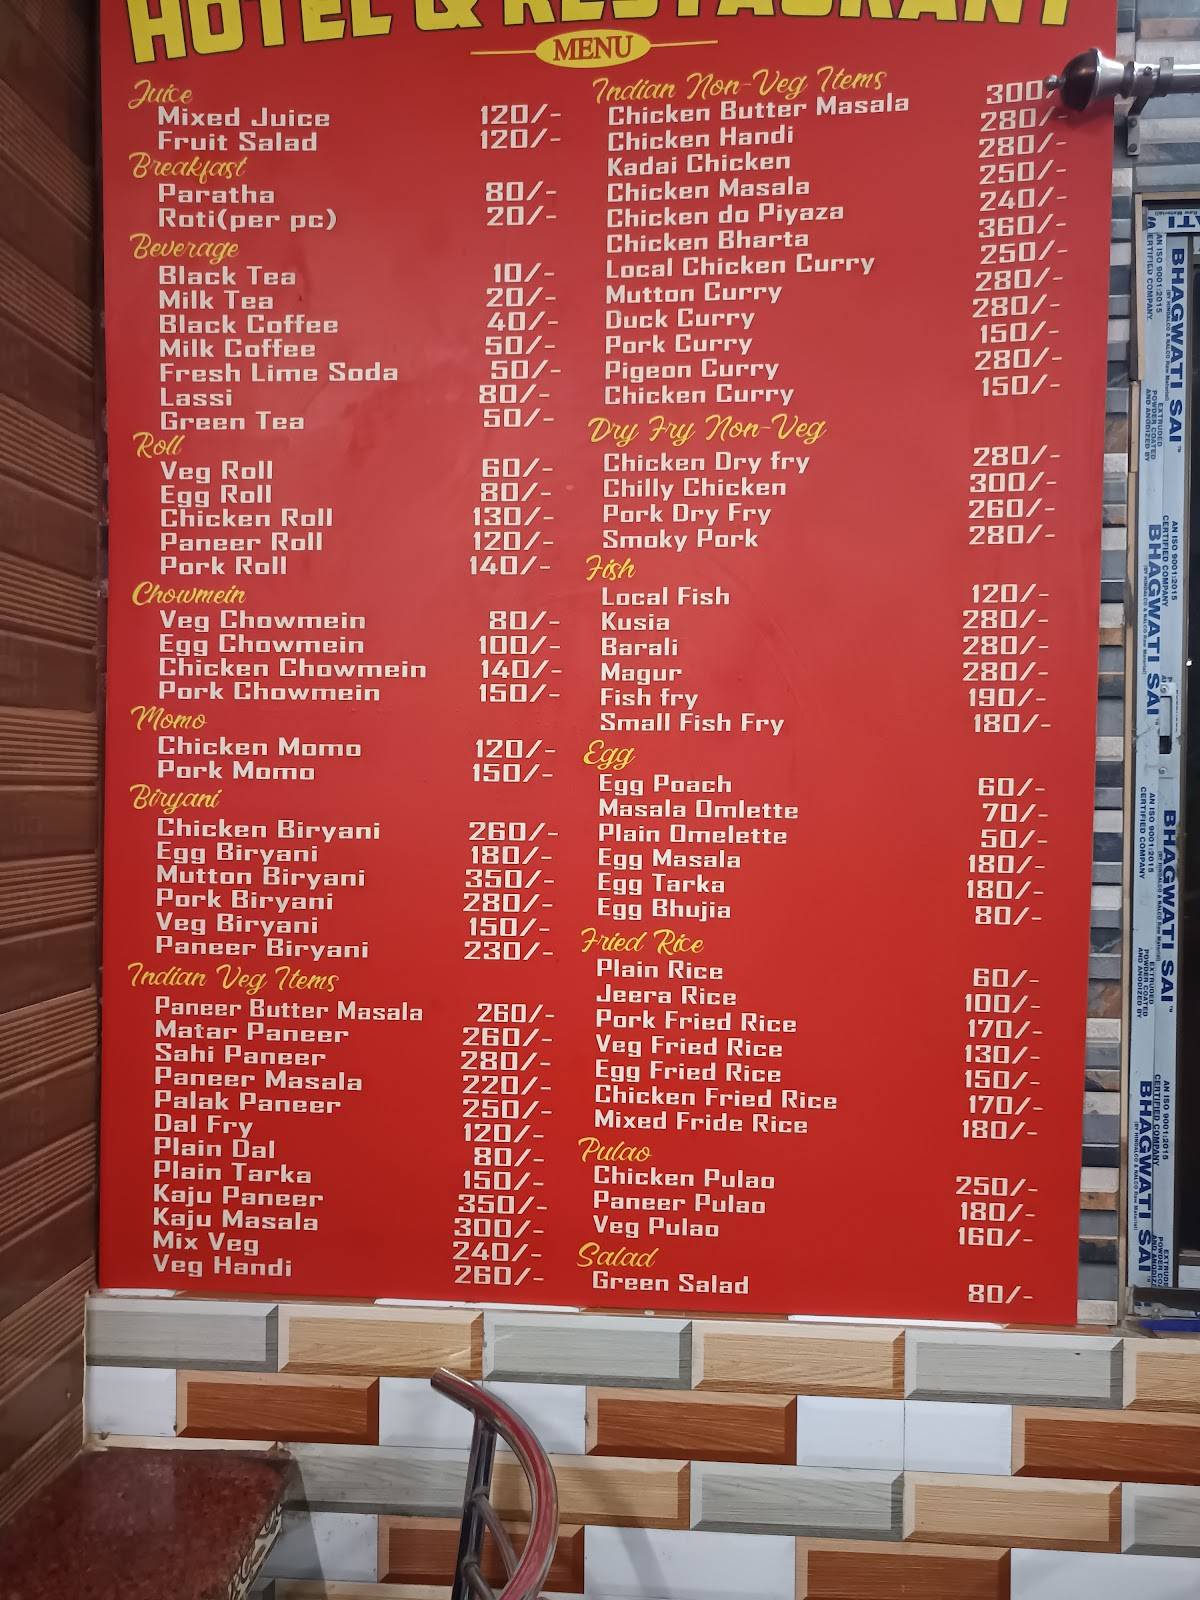 HOTEL & RESTAURANT
MENU
Juice
Mixed Juice 120/-
Fruit Salad 120/-
Breakfast
Paratha 80/-
Roti(per pc) 20/-
Beverage
Black Tea 10/-
Milk Tea 20/-
Black Coffee 40/-
Milk Coffee 50/-
Fresh Lime Soda 50/-
Lassi 80/-
Green Tea 50/-
Roll
Veg Roll 60/-
Egg Roll 80/-
Chicken Roll 130/-
Paneer Roll 120/-
Pork Roll 140/-
Chowmein
Veg Chowmein 80/-
Egg Chowmein 100/-
Chicken Chowmein 140/-
Pork Chowmein 150/-
Momo
Chicken Momo 120/-
Pork Momo 150/-
Biryani
Chicken Biryani 260/-
Egg Biryani 180/-
Mutton Biryani 350/-
Pork Biryani 280/-
Veg Biryani 150/-
Paneer Biryani 230/-
Indian Veg Items
Paneer Butter Masala 260/-
Matar Paneer 260/-
Sahi Paneer 280/-
Paneer Masala 220/-
Palak Paneer 250/-
Dal Fry 120/-
Plain Dal 80/-
Plain Tarka 150/-
Kaju Paneer 350/-
Kaju Masala 300/-
Mix Veg 240/-
Veg Handi 260/-
Indian Non-Veg Items
Chicken Butter Masala 300/
Chicken Handi 280/-
Kadai Chicken 280/-
Chicken Masala 250/-
Chicken do Piyaza 240/-
Chicken Bharta 360/-
Local Chicken Curry 250/-
Mutton Curry 280/-
Duck Curry 280/-
Pork Curry 150/-
Pigeon Curry 280/-
Chicken Curry 150/-
Dry Fry Non-Veg
Chicken Dry fry 280/-
Chilly Chicken 300/-
Pork Dry Fry 260/-
Smoky Pork 280/-
Fish
Local Fish 120/-
Kusia 280/-
Barali 280/-
Magur 280/-
Fish fry 190/-
Small Fish Fry 180/-
Egg
Egg Poach 60/-
Masala Omlette 70/-
Plain Omelette 50/-
Egg Masala 180/-
Egg Tarka 180/-
Egg Bhujia 80/-
Fried Rice
Plain Rice 60/-
Jeera Rice 100/-
Pork Fried Rice 170/-
Veg Fried Rice 130/-
Egg Fried Rice 150/-
Chicken Fried Rice 170/-
Mixed Fride Rice 180/-
Pulao
Chicken Pulao 250/-
Paneer Pulao 180/-
Veg Pulao 160/-
Salad
Green Salad 80/-
AN ISO 9001:2015
CERTIFIED COMPANY
BHAGWATI SAI™
(BY HINDALCO & NALCO Raw Material)
EXTRUDED
POWDER COATED
AND ANODIZED BY
BHAGWATI SAI
AN ISO 9001:2015
CERTIFIED COMPANY
BHAGWATI SAI™
EXTRUDED
POWDER COATED
AND ANODIZED BY
BHAGWATI SAI
AN ISO 9001:2015
CERTIFIED COMPANY